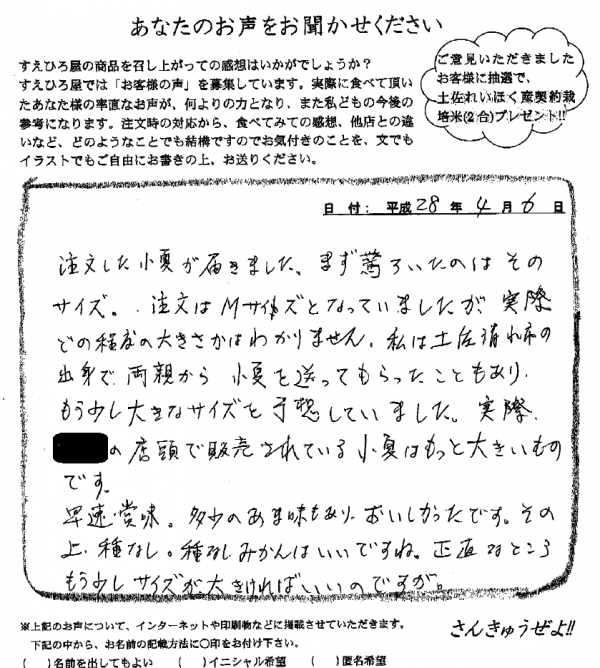 あなたのお声をお聞かせください
すえひろ屋の商品を召し上がっての感想はいかがでしょうか?
すえひろ屋では「お客様の声」を募集しています。実際に食べて頂い
たあなた様の率直なお声が、何よりの力となり、また私どもの今後の
参考になります。注文時の対応から、食べてみての感想、他店との違
いなど、どのようなことでも結構ですのでお気付きのことを、文でも
イラストでもご自由にお書きの上、お送りください。
ご意見いただきました
お客様に抽選で、
土佐れいほく産契約栽
培米(2合)プレゼント!!
日 付: 平成 28 年 4 月 6 日
注文した小夏が届きました。まず驚ろいたのはその
サイズ。注文はMサイズとなっていましたが、実際
どの程度の大きさかはわかりません。私は土佐清水市の
出身で、両親から 小夏を送ってもらったこともあり、
もう少し大きなサイズを予想していました。実際、
の店頭で販売されている小夏はもっと大きいもの
です。
早速、賞味。多少のあま味もあり、おいしかったです。その
上、種なし。種なしみかんはいいですね。正直なところ
もう少しサイズが大きければいいのですが。
※上記のお声について、インターネットや印刷物などに掲載させていただきます。
下記の中から、お名前の記載方法に○印をお付け下さい。
( )名前を出してもよい ( )イニシャル希望 ( )匿名希望
さんきゅうぜよ!!